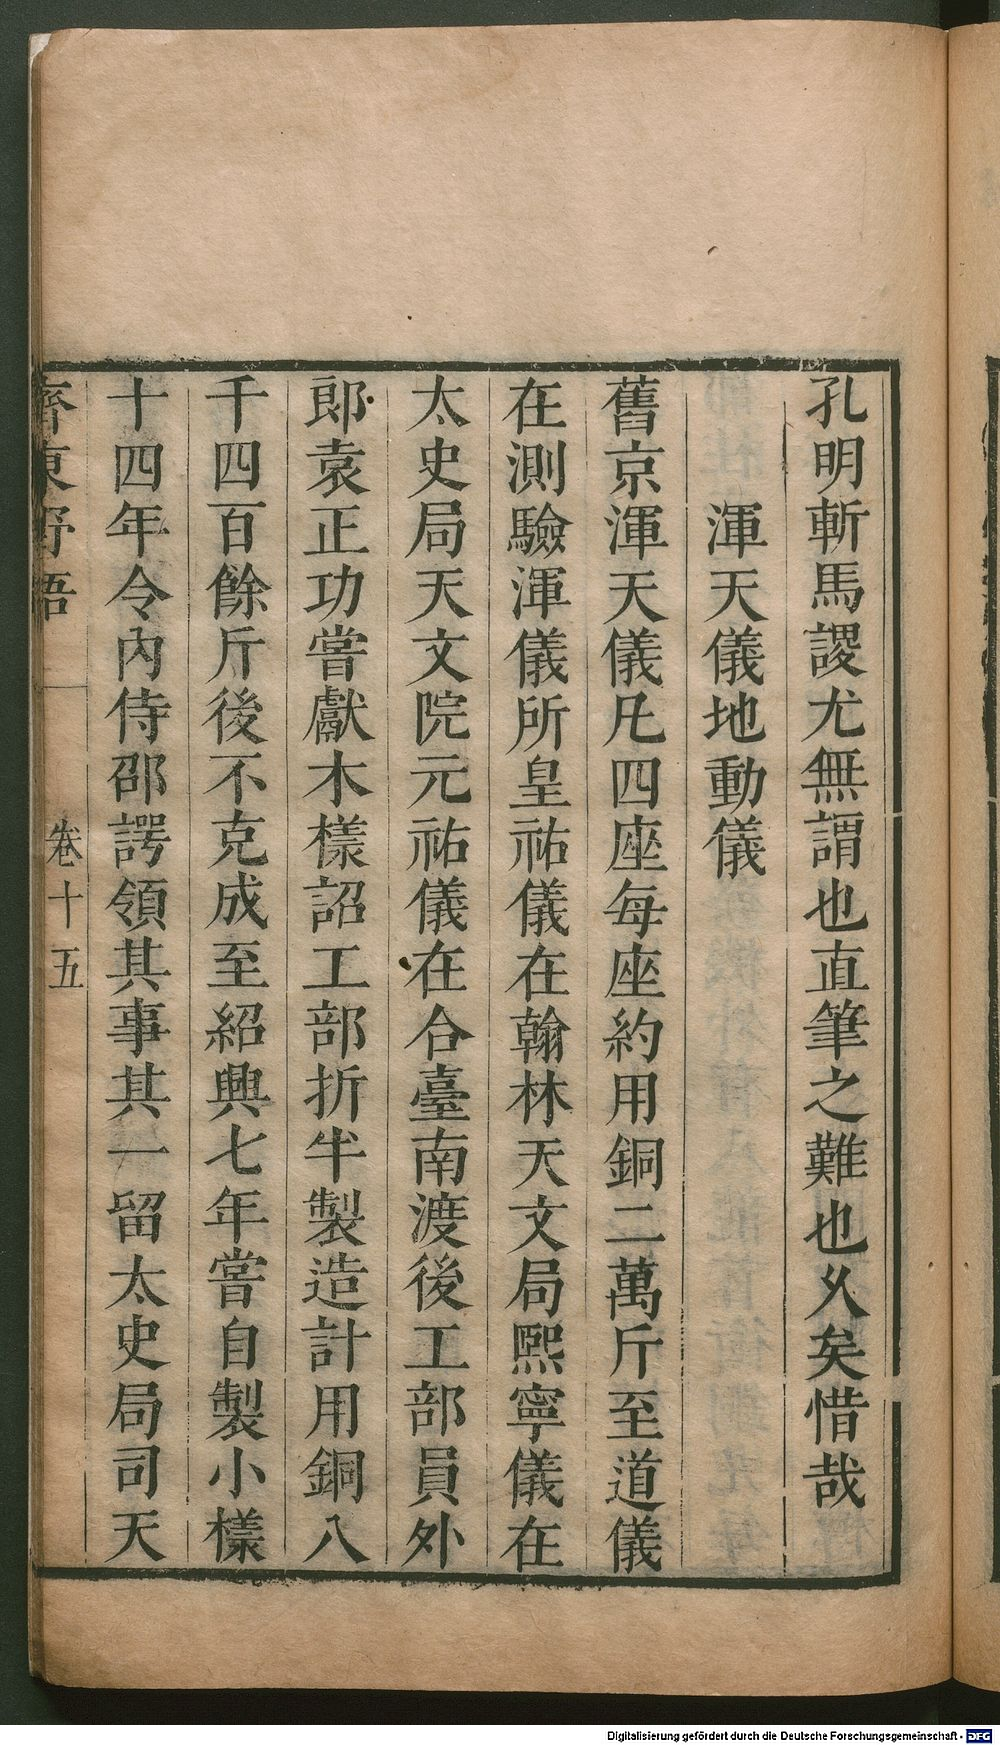 孔明斬馬謖尤無謂也直筆之難也乆矣惜哉
渾天儀地動儀
舊京渾天儀凡四座每座約用銅二萬斤至道儀
在測驗渾儀所皇祐儀在翰林天文局熙寧儀在
太史局天文院元祐儀在合臺南渡後工部員外
郎袁正功嘗獻木樣詔工部折半製造計用銅八
千四百餘斤後不克成至紹興七年嘗自製小樣
十四年令內侍邵諤領其事其一留太史局司天
齊東野語 卷十五
Digitalisierung gefördert durch die Deutsche Forschungsgemeinschaft - DFG